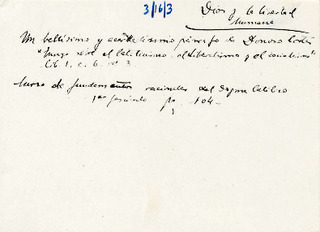 3/16/3
Dios y la libertad
humana
Un bellísimo y párrafo de Donoso Cortés
"Ensayo sobre el Catolicismo, el liberalismo y el socialismo"
Lib. 1, c. 6, nº 3
Curso de fundamentos racionales del dogma Católico
1er fascículo pg. 104